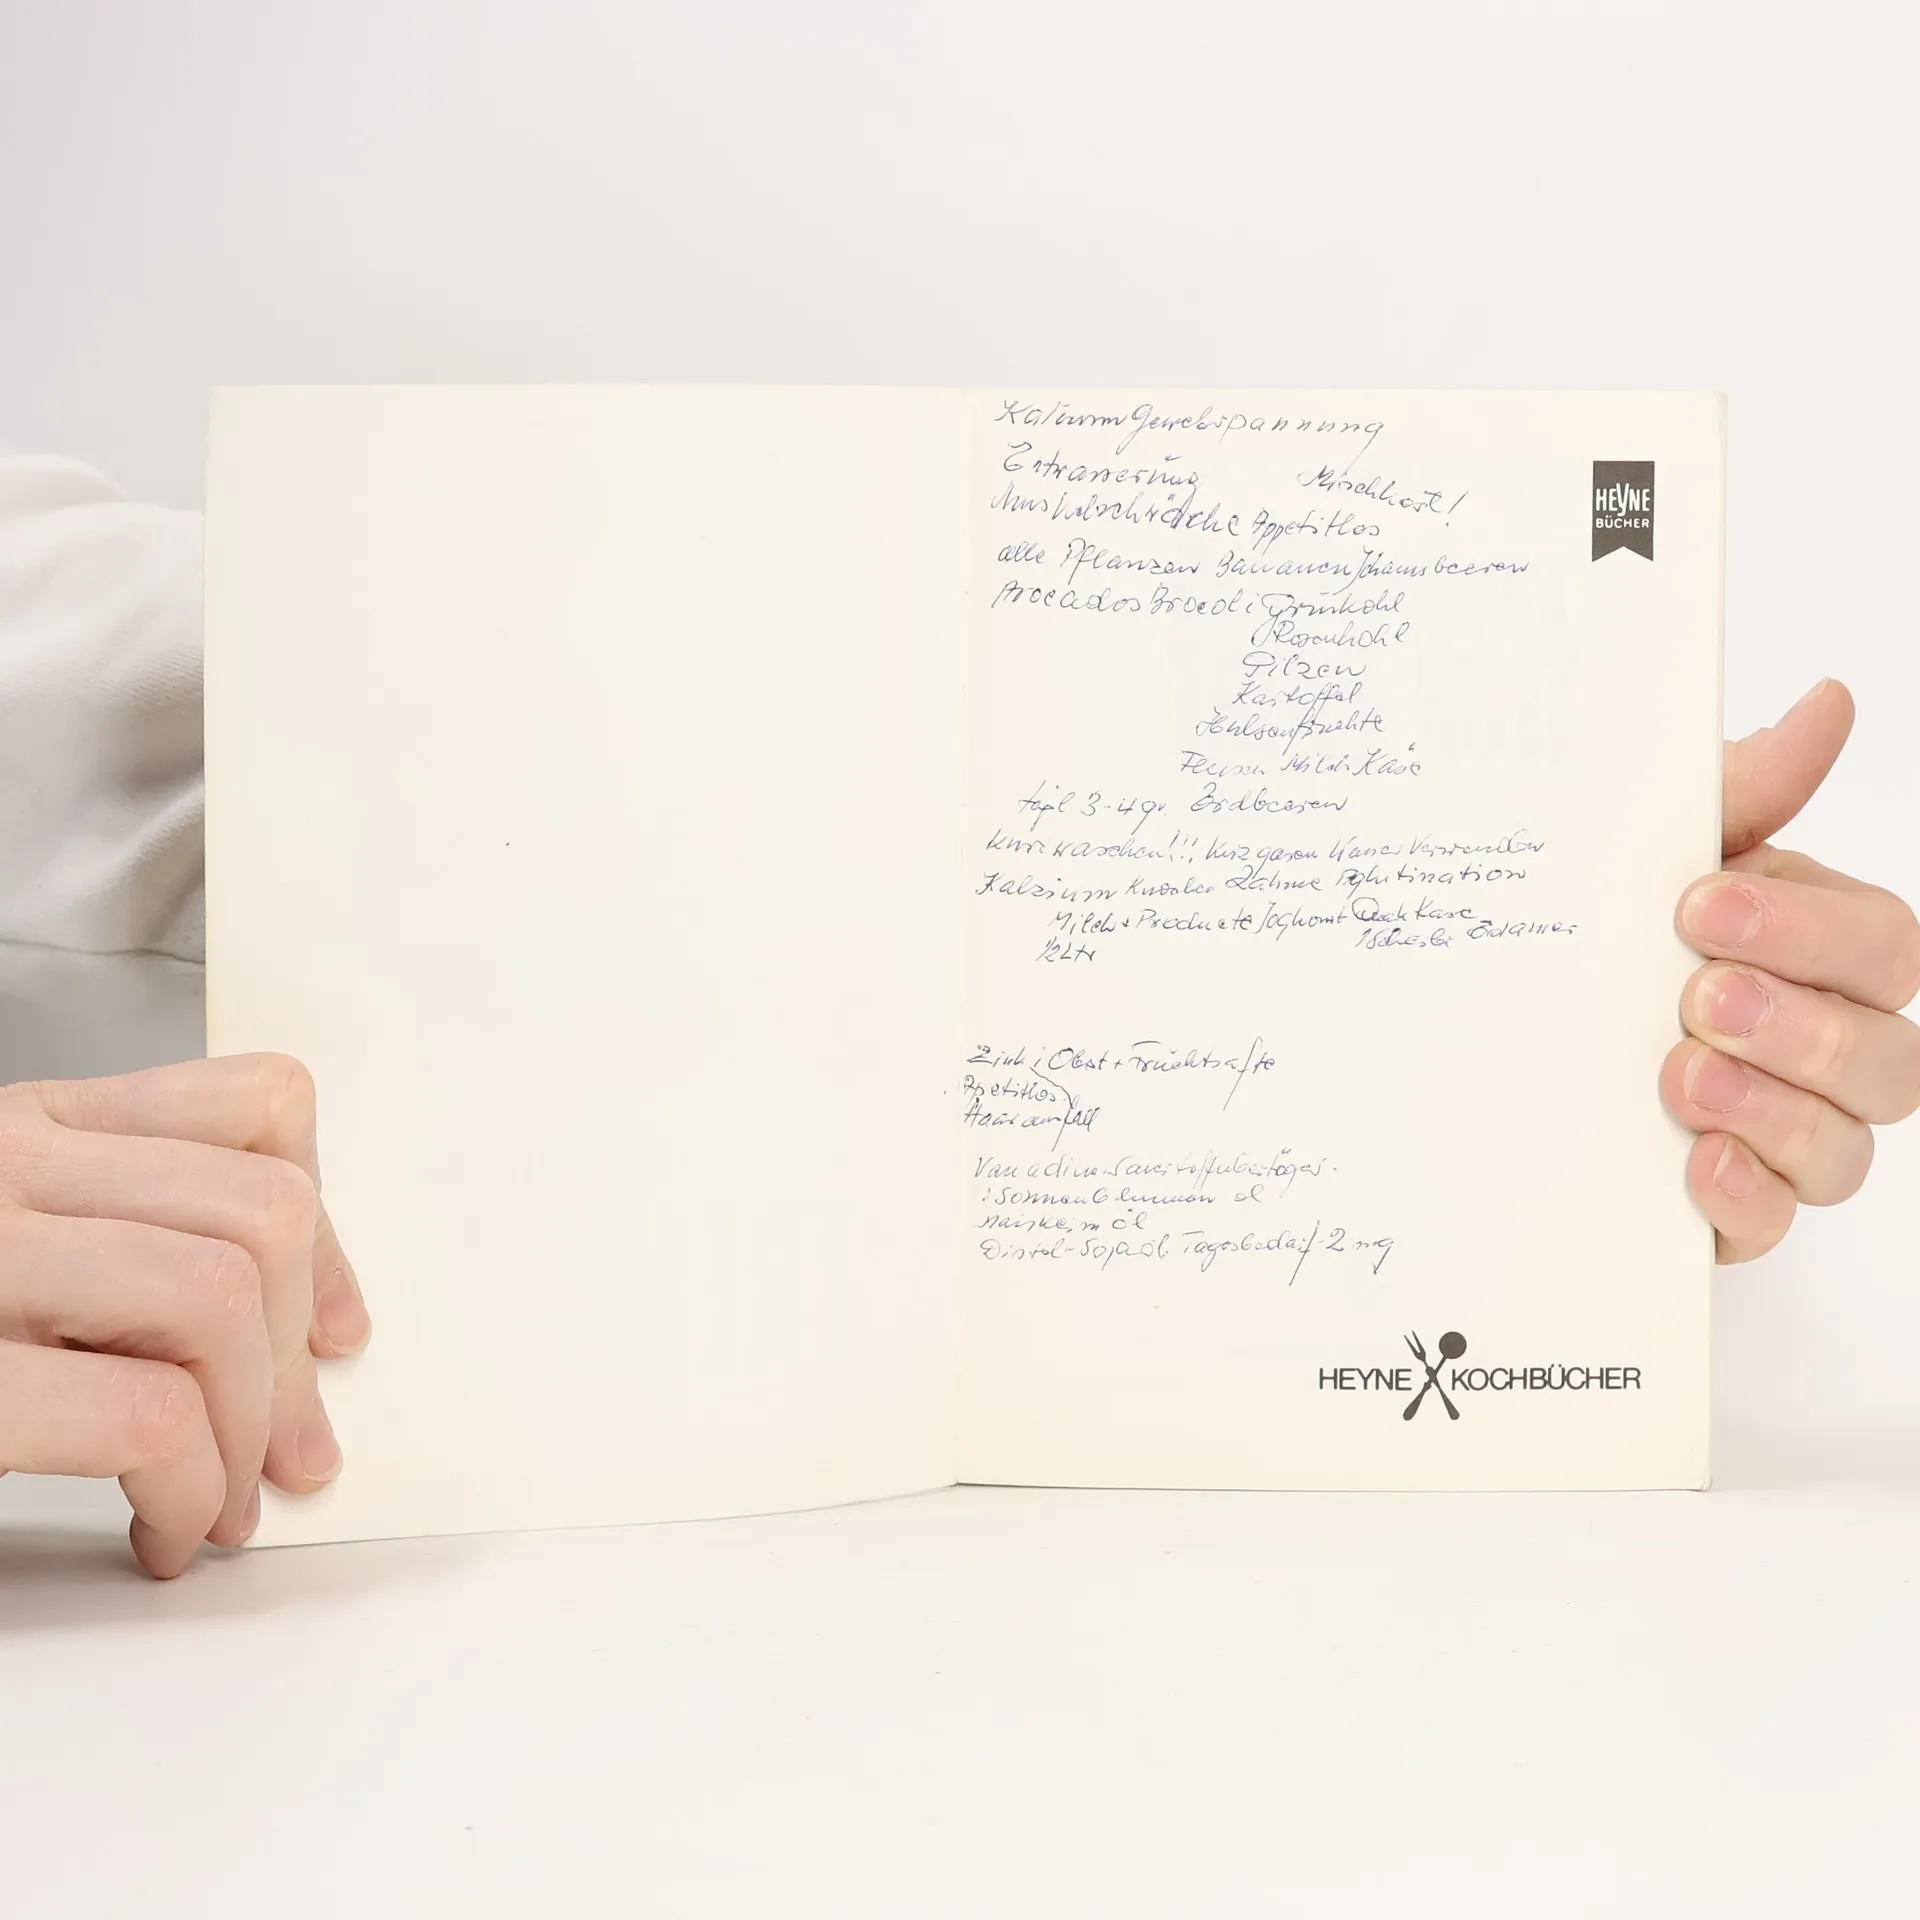 Kalium Gewebspannung
Entwasserung Mischkost!
Muskelschwäche Appetitlos
alle Pflanzen Bananen Johannsbeeren
Avocados Brocoli Grünkohl
Rosenkohl
Pilzen
Kartoffel
Hulsenfruchte
Milch Käse
tägl 3-4 gr. Erdbeeren
kurz waschen!!! kurz garen Wasser Verwenden
Kalzium Knochen Zähne
Milch + Producte Joghourt Quark Kase
1 Scheibe Edamer
1/2 Ltr
Zink i Obst + Fruchtsafte
Apetitlos
Haarausfall
Vanadium Sauerstoffuberträger.
: Sonnenblumen öl
Maiskeim öl
Distel-Sojaöl. Tagesbedarf-2 mg
HEYNE
BÜCHER
HEYNE KOCHBÜCHER